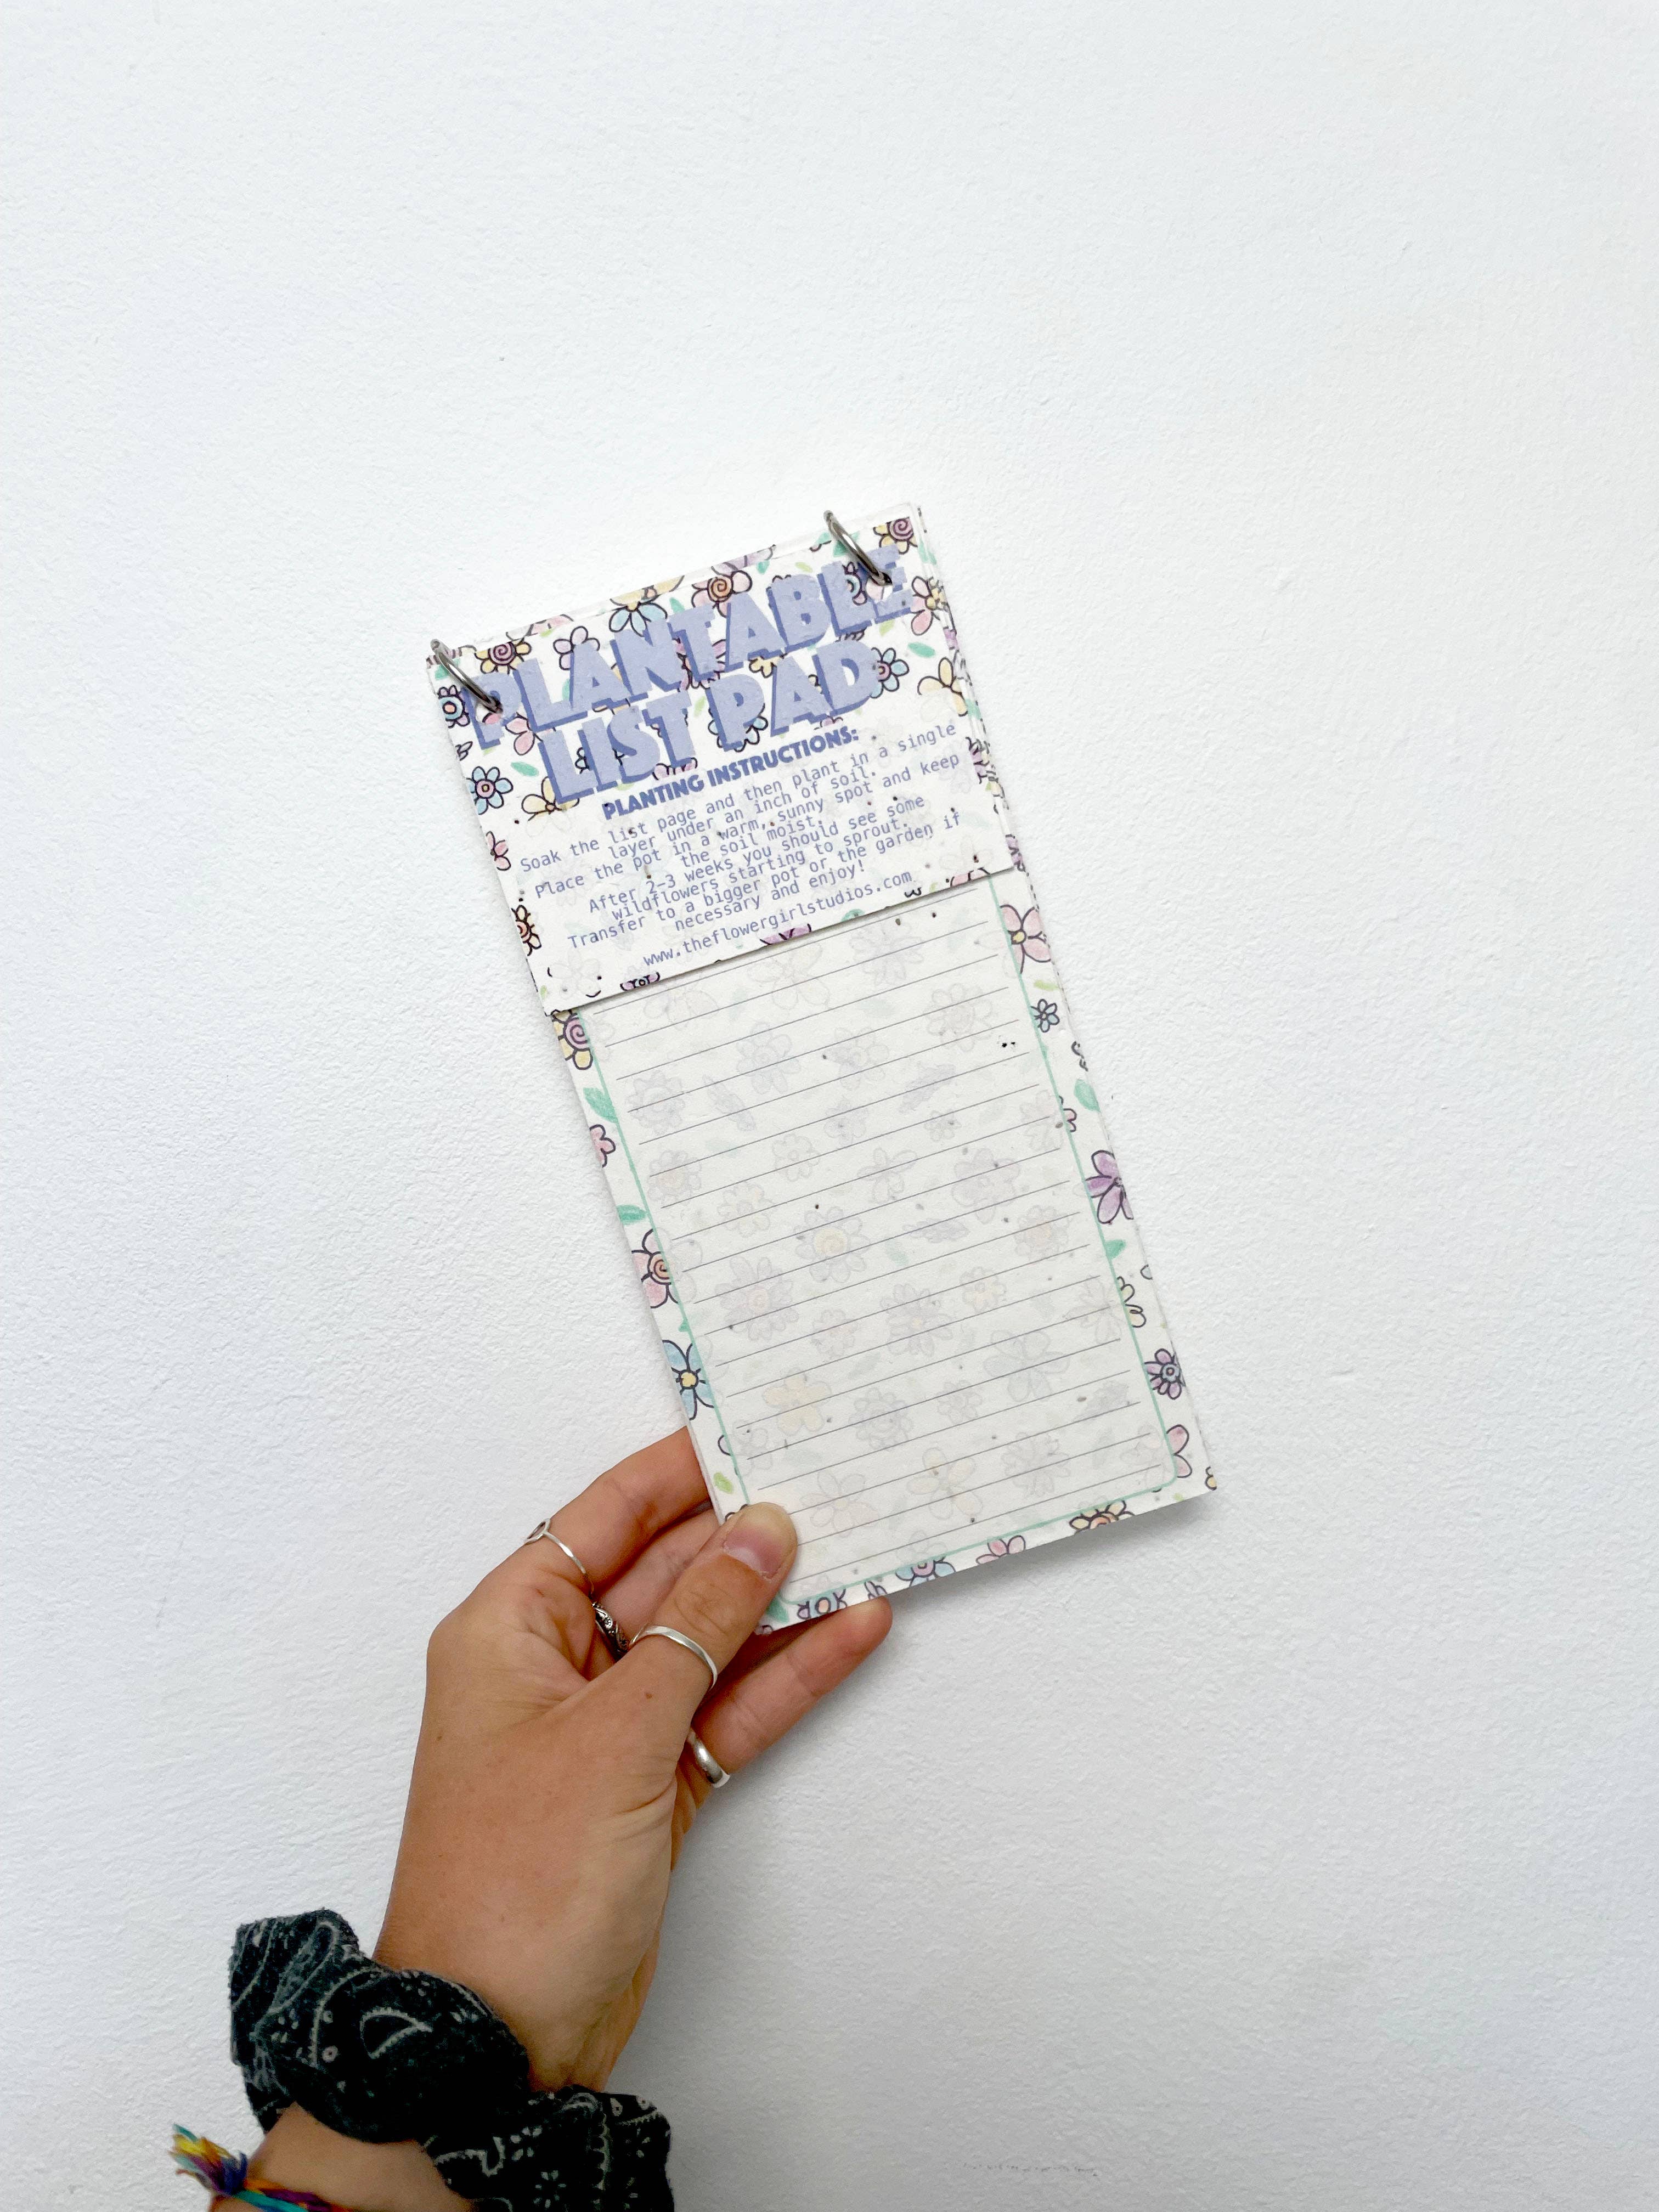 PLANTABLE
LIST PAD
PLANTING INSTRUCTIONS:
Soak the list page and then plant in a single
layer under an inch of soil.
Place the pot in a warm, sunny spot and keep
the soil moist.
After 2-3 weeks you should see some
wildflowers starting to sprout.
Transfer to a bigger pot or the garden if
necessary and enjoy!
www.theflowergirlstudios.com